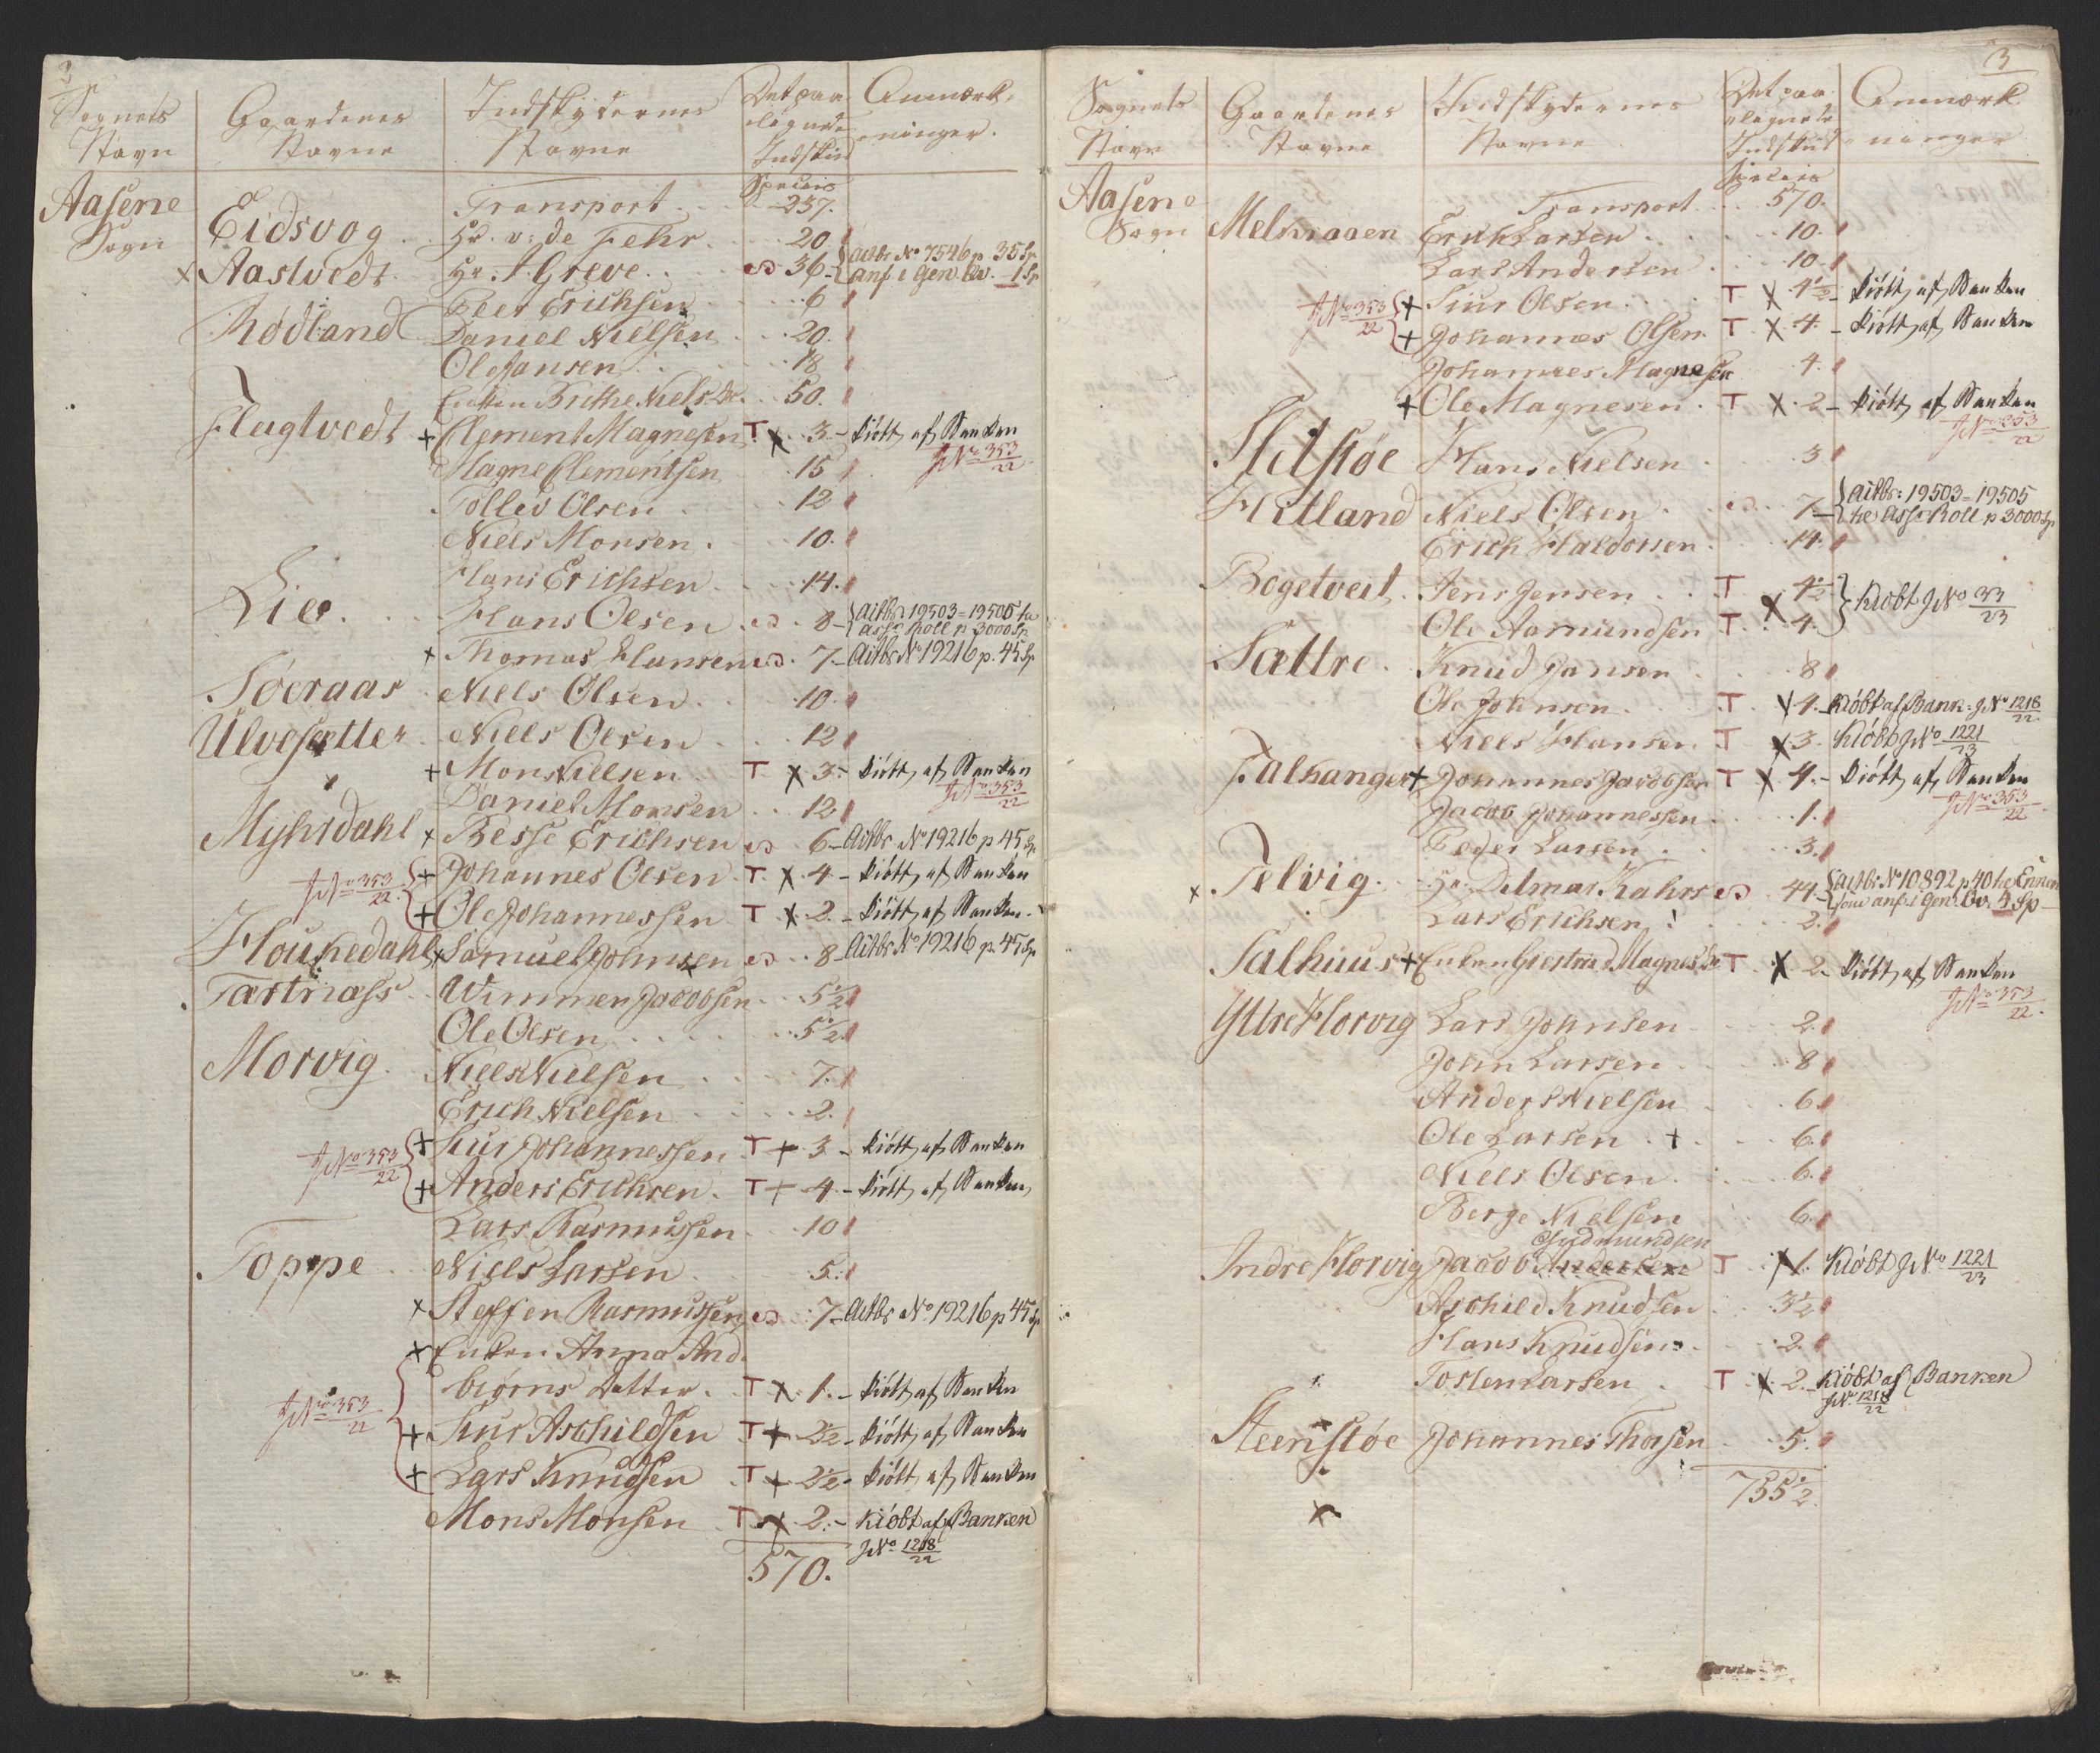 2
Sognets Navn | Gaardenes Navne | Indskydernes Navne | Det paalagnede Indskud | Anmærkninger.
Species
Aasene Sogn
Transport . . . 237.
Eidsvog . Hr. v: de Fehr. . . 20
× Aastvedt. Hr. A Greve . . 36 – { Actbr No 7546 p 35 Sp anf. i Gen. Qv. 1 Sp
Peer Erichsen . . 6
Rødland Daniel Nielsen . . 20.
Ole Jansen . . 18
Enken Brithe Niels Dr. . 50.
Flagtvedt + Clement Magnesen T. × . 3. – kiöbt af Banken
JNo 353/22
Magne Clementsen . . 15
Tollev Olsen . . 12
Niels Monsen . . . 10.
Hans Erichsen . . . 14.
Lie . . Hans Olsen . . 8 – { Actbr. 19503 = 19505 he Assr Roll p 3000 Sp
× Thomas Hansen . 7. – Actbr No 19216 p. 45 Sp
Søeraas Niels Olsen . . 10.
Ulvesetter Niels Olsen . . 12
+ Mons Nielsen . T × 3 – kiöbt af Banken
JNo 353/22
Daniel Monsen . . 12
Myhrdahl × Besse Erichsen 6 – Actbr No 19216 p 45 Sp
JNo 353/22 { + Johannes Olsen . T. × . 4. – kiöbt af Banken
+ Ole Johannessen T × . 2. – kiöbt af Banken.
Houkedahl × Samuel Johnsen . . 8 – Actbr No 19216 p. 45 Sp
Tartnæss . Wimmen Jacobsen . 5½
Ole Olsen . . . . 5½
Morvig . Niels Nielsen . . . 7.
Erich Nielsen . . . 2.
JNo 353/22 { + Siur Johannessen T + 3 – kiöbt af Banken
+ Anders Erichsen . T + 4. – kiöbt af Banken
Lars Rasmussen . . 10
Toppe Niels Larsen . . . 5.
× Steffen Rasmussen . 7 – Actbr No 19216 p 45 Sp
× Enken Anna And.
JNo 353/22 { biørns Datter . T × . 1. – kiöbt af Banken
+ Siur Aschildsen T + 2½ – kiöbt af Banken
+ Lars Knudsen . T + 2½ – kiöbt af Banken
Mons Monsen T × 2. – Kiöbt af Banken
JNo 1218/22
570.
3
Sognets Navn | Gaardenes Navne | Indskydernes Navne | Det paalagnede Indskud | Anmærkninger
Species
Aasene Sogn
Transport . . . 570.
Melkraaen Erich Larsen . . . 10.
Lars Andersen . . 10
JNo 353/22 { + Siur Olsen . . T × 4½ – kiöbt af Banken
+ Johannes Olsen T × . 4. – kiöbt af Banken
Johannes Magnesen 4.
+ Ole Magnesen . T × . 2 – kiöbt af Banken
JNo 353/22
Sletstøe Hans Nielsen . . . 3
Hetland Niels Olsen . . 7. – { Actbr: 19503 = 19505 he Assr Roll p 3000 Sp.
Erich Haldorsen . . 14.
Bøgetveit . Jens Jensen . . T 4½ } Kiöbt JNo 33/23
Ole Aamundsen T. × . 4.
Sættre . Knud Jansen . . 8
Ole Johnsen . T. × 4. – Kiöbt af Bank. JNo 1218/22
Niels Hansen T × 3. Kiöbt JNo 1221/23
Falkanger + Johannes Jacobsen T × . 4. – kiöbt af Banken
JNo 353/22
Jacob Johannessen . . 1.
Peder Larsen . . . 3.
× Telvig . Hr. Delmar Kahrs 44 – { Actbr No 10892 p 40 anf. i Gen. Qv. 4 Sp
Lars Erichsen . . 2.
Salhuus + Enken Giertrud Magnes Dr T . × . 2 – kiöbt af Banken
JNo 353/22.
Yttre Horvig Lars Johnsen . . 2.
John Larsen . . 8
Anders Nielsen . . 6
Ole Larsen . + . . 6.
Niels Olsen . . . 6.
Børge Nielsen . . 6.
Sydmundsen
Indre Horvig Jacob Andersen T . × 1. Kiöbt JNo 1221/23
Aschild Knudsen . . 3½
Hans Knudsen . . . 2.
Tosten Larsen . T . × . 2. – Kiöbt af Banken
JNo 1218/22
Steenstøe Johannes Thorsen . . 5.
755½.